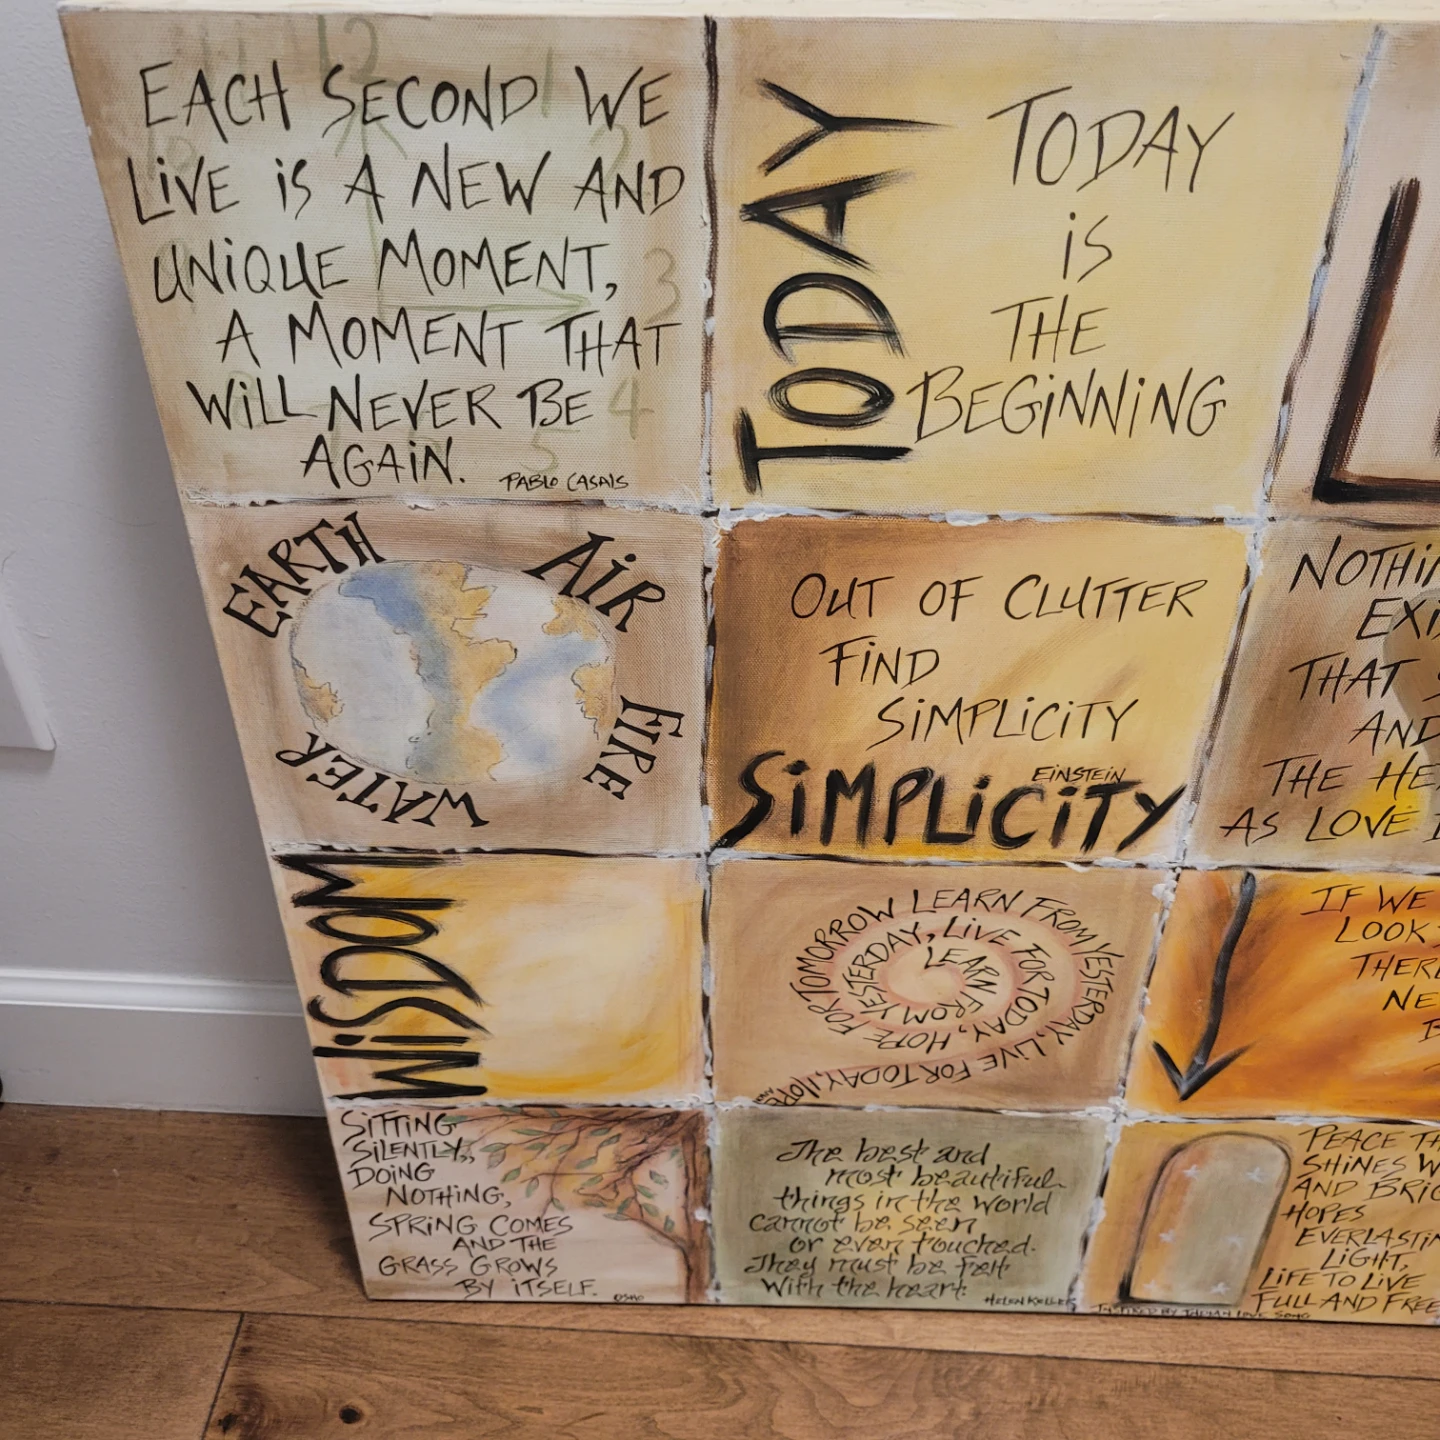 EACH SECOND WE
LIVE IS A NEW AND
UNIQUE MOMENT,
A MOMENT THAT
WILL NEVER BE
AGAIN.
PABLO CASALS
12
1
2
3
4
5
TODAY
TODAY
IS
THE
BEGINNING
L
EARTH
AIR
FIRE
WATER
OUT OF CLUTTER
FIND
SIMPLICITY
EINSTEIN
SIMPLICITY
NOTHIN
EXIS
THAT
AND
THE HEA
AS LOVE
WISDOM
LEARN FROM YESTERDAY, LIVE FOR TODAY, HOPE FOR TOMORROW LEARN FROM YESTERDAY, LIVE FOR TODAY, HOPE FOR TOMORROW LEARN FROM YESTERDAY, LIVE FOR TODAY, HOPE
IF WE
LOOK
THERE
NE
B
SITTING
SILENTLY,,
DOING
NOTHING,
SPRING COMES
AND THE
GRASS GROWS
BY ITSELF.
OSHO
The best and
most beautiful
things in the world
cannot be seen
or even touched.
They must be felt
with the heart.
HELEN KELLER
PEACE TH
SHINES W
AND BRIG
HOPES
EVERLASTIN
LIGHT,
LIFE TO LIVE
FULL AND FREE
INSPIRED BY INDIAN LOVE SONG